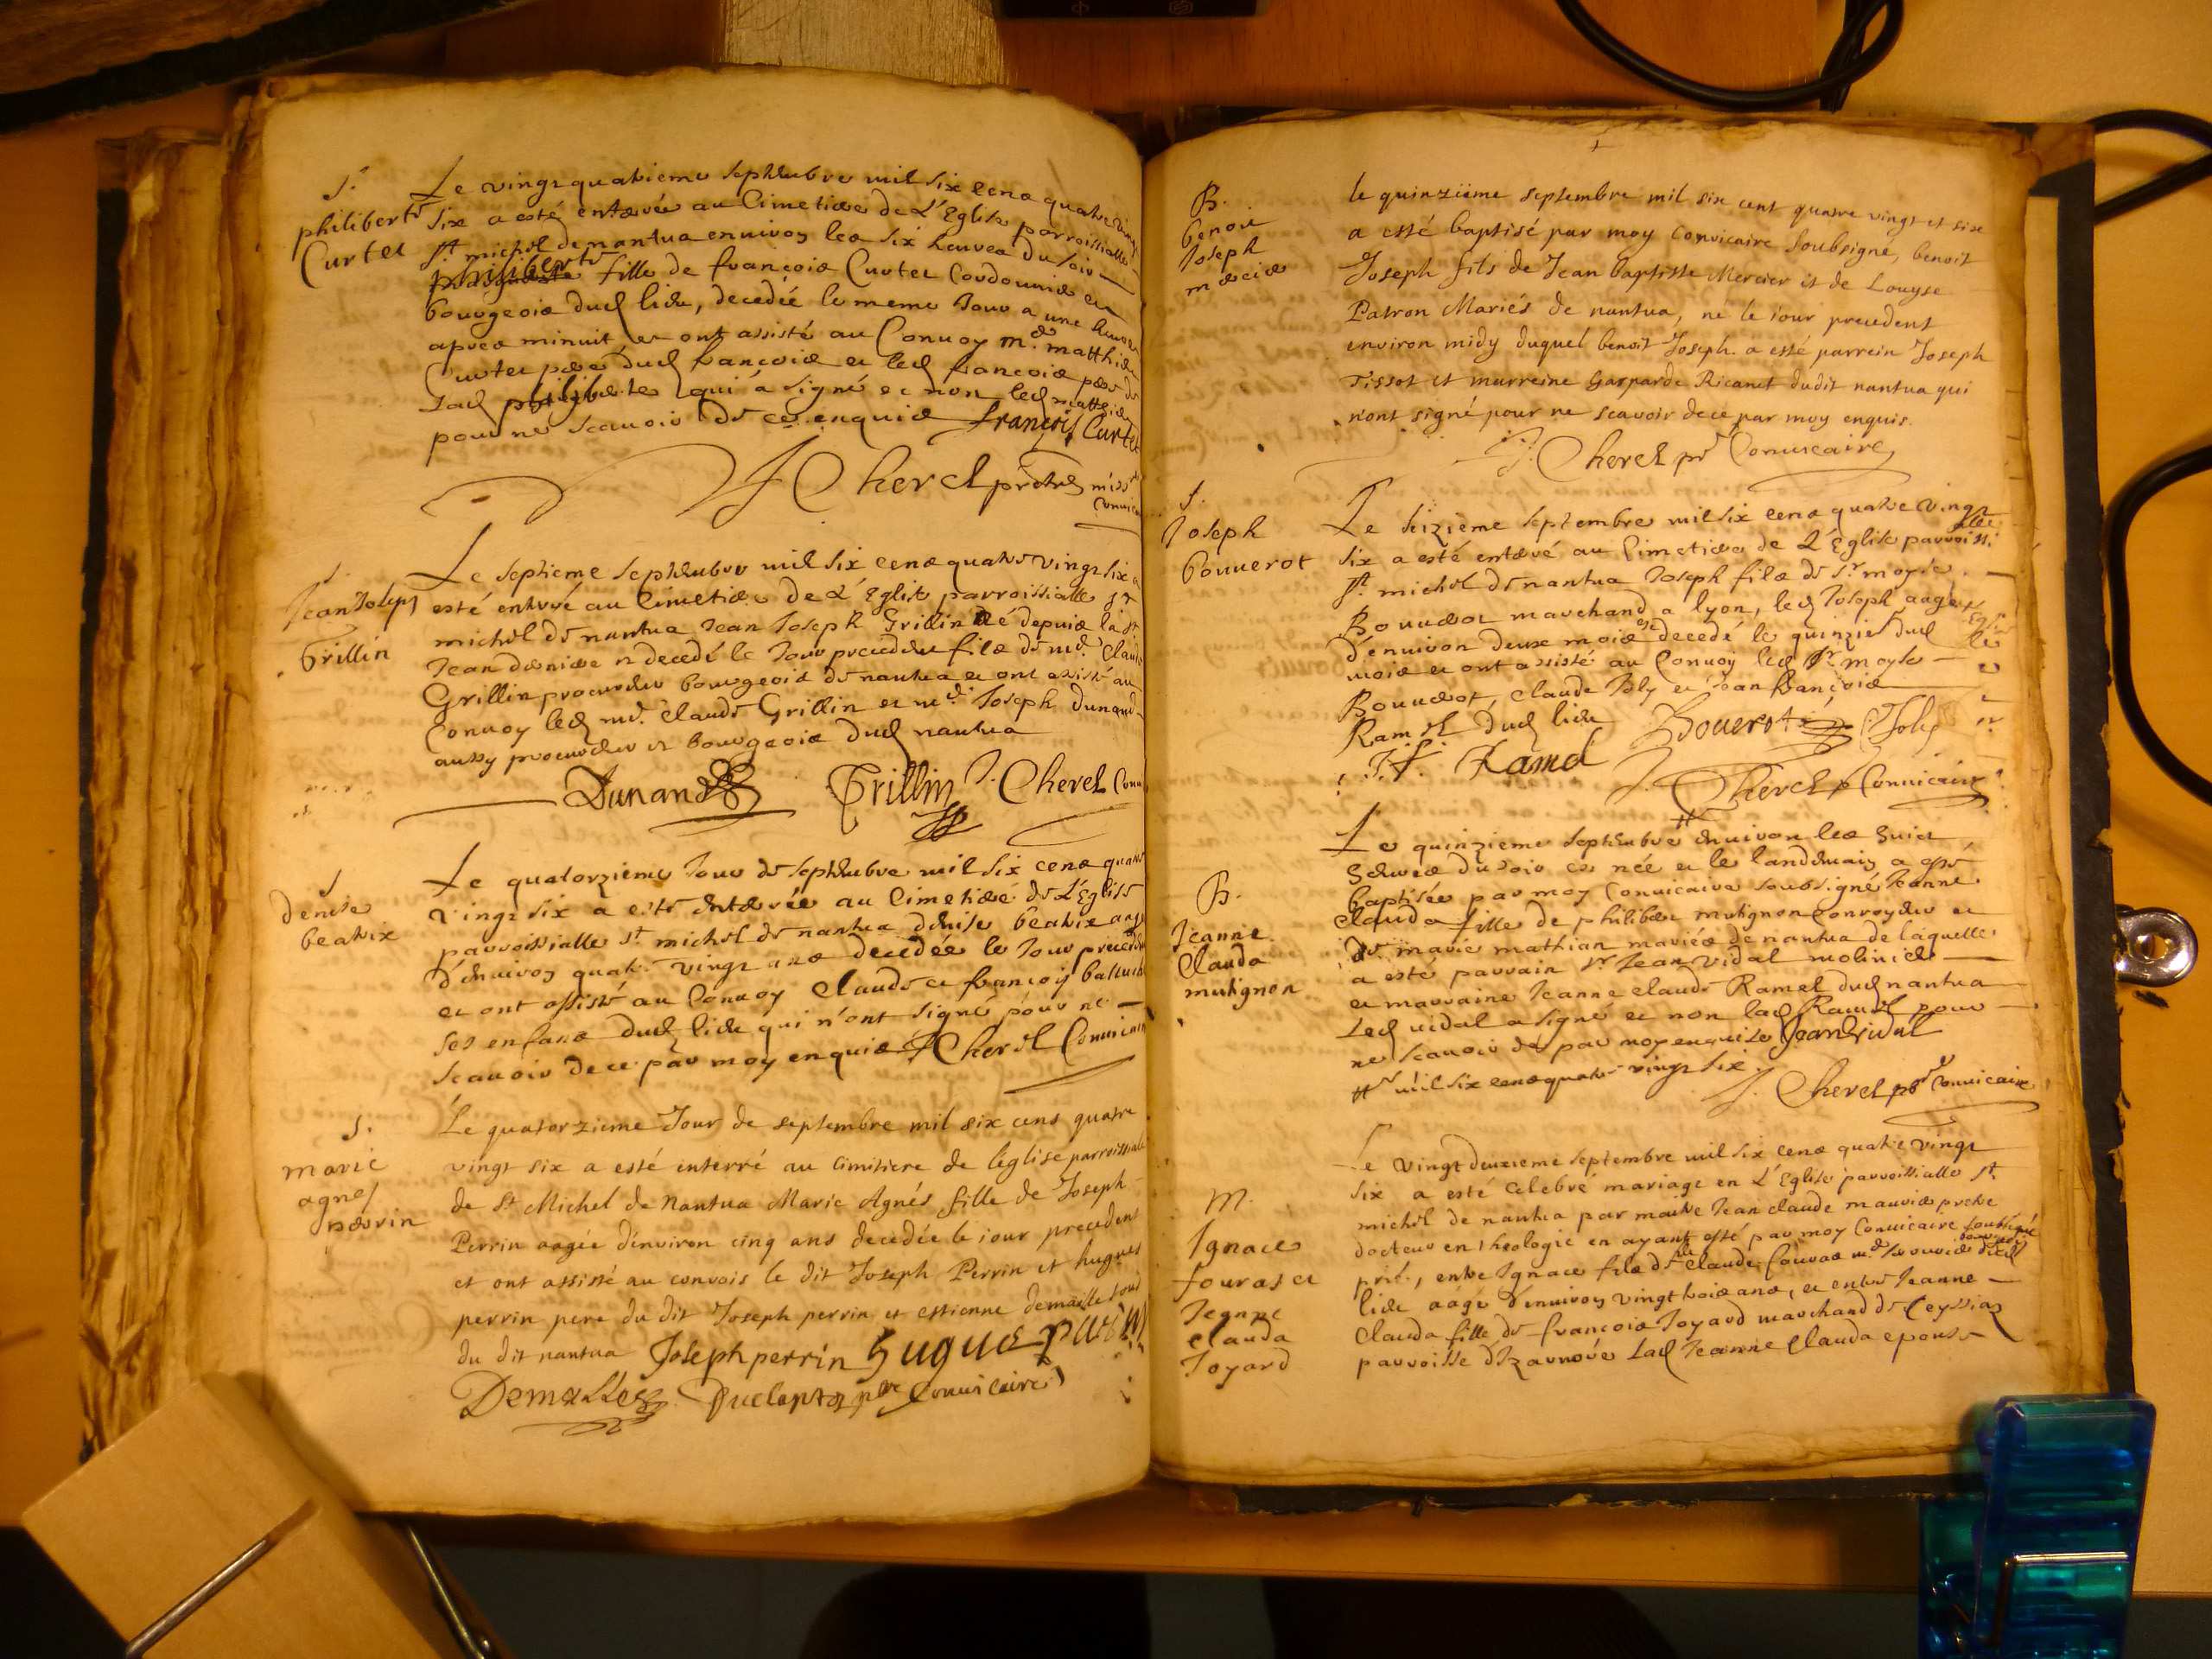 S.
philiberte
Curtet
Le vingt quatrieme septembre mil six cens quatre vingt
six a esté enterrée au Cimetiere de L'Eglise parroissialle
st. michel de nantua environ les six heures du soir
philiberte fille de françois Curtet Cordonnier et
bourgeois dud lieu, decedée le meme Jour a une heure
apres minuit et ont assisté au Convoy md. matthieu
Curtet pere dud françois et led françois pere de
lad philiberte qui a signé et non led matthieu
pour ne scavoir de ce enquis françois Curtet
J Cherel prebtre miss
convicaire
S.
Jean Joseph
Grillin
Le septieme septembre mil six cens quatre vingt six a
esté enterré au Cimetiere de L'Eglise parroissialle st
michel de nantua Jean Joseph Grillin né depuis la st
Jean derniere et decedé le Jour precedent fils de md. Claude
Grillin procureur bourgeois de nantua et ont assisté au
Convoy led md. Claude Grillin et md. Joseph Dunand
aussy procureur et bourgeois dud nantua
Dunand Grillin J. Cherel Conv
S
denise
beatrix
Le quatorzieme Jour de septembre mil six cens quatre
vingt six a esté enterrée au Cimetiere de L'Eglise
parroissialle st. michel de nantua denise beatrix aagée
d'environ quatre vingt ans decedée le Jour precedent
et ont assisté au Convoy Claude et françois
ses enfans dud lieu qui n'ont signé pour ne
scavoir de ce par moy enquis J Cherel Convicaire
S.
marie
agnes
perrin
Le quatorzieme Jour de septembre mil six cens quatre
vingt six a esté interré au cimitiere de l'église parroissiale
de St Michel de Nantua Marie Agnés fille de Joseph
Perrin aagée d'environ cinq ans decedée le iour precedent
et ont assisté au convois le dit Joseph Perrin et hugues
perrin pere du dit Joseph perrin et estienne demasle tous
du dit nantua Joseph perrin hugue perin
Demalle Convicaire
B.
benoit
Joseph
mercier
le quinziéme septembre mil six cent quatre vingt et six
a esté baptisé par moy convicaire soubsigné, benoit
Joseph fils de Jean baptiste Mercier et de Louyse
Patron Mariés de nantua, né le iour precedent
environ midy duquel benoit Joseph. a esté parrein Joseph
Tissot et marreine Gasparde Ricanet dudit nantua qui
n'ont signé pour ne scavoir de ce par moy enquis.
J. Cherel pr Convicaire
S.
Joseph
bouverot
Le seizieme septembre mil six cens quatre vingt
six a esté enterré au Cimetiere de L'Eglise parroissialle
st. michel de nantua Joseph fils de sr. moyse
Bouverot marchand a lyon, led Joseph aagé
d'environ deux mois et decedé le quinzie dud
mois et ont assisté au Convoy led sr. moyse
Bouverot, claude Joly et Jean françois
Ramel dud lieu Bouerot C Joly
J. f. Ramel
J. Cherel p Convicaire
B.
Jeanne
Clauda
mutignon
Le quinzieme septembre # environ les huict
heures du soir est née et le landemain a esté
baptisée par moy Convicaire soubsigné Jeanne
Clauda fille de philibert mutignon conroyeur et
de marie mathian mariés de nantua de laquelle
a esté parrain sr. Jean vidal molinier
et marraine Jeanne claude Ramel dud nantua
Led vidal a signé et non lad Ramel pour
ne scavoir de par moy enquise Jean Vidal
# mil six cens quatre vingt six.
J. Cherel pbr Convicaire
M.
Ignace
fouras et
Jeanne
Clauda
Joyard
Le vingt deuxieme septembre mil six cens quatre vingt
six a esté celebré mariage en L'Eglise parroissialle st.
michel de nantua par maitre Jean claude mauvis prebtre
docteur en theologie en ayant esté par moy Convicaire soubsigné
prié, entre Ignace fils de claude fouras md. bourgeois dud
lieu aagé d'environ vingt trois ans, et entre Jeanne
Clauda fille de françois Joyard marchand de Ceyssia
parroisse d'Izarnove lad Jeanne Clauda epouse